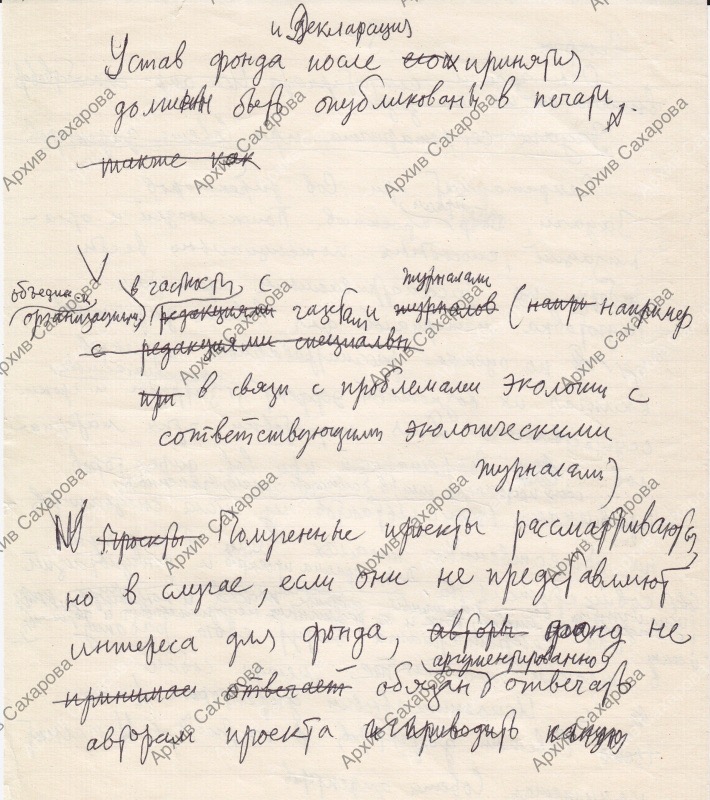 и Декларация
Устав фонда после принятия
должны быть опубликованы в печати.
также как
V
объедин
организациями) в частности с журналами
редакциями газетами и журналов (напри например
с редакциями специальн
при в связи с проблемами экологии с
соответствующими экологическими
журналами)
Проекты Полученные проекты рассматриваются,
но в случае, если они не представляют
интереса для фонда, авторы фонд не
аргументированно
принимает отвечает обязан отвечать
авторам проекта и приводить
Архив Сахарова